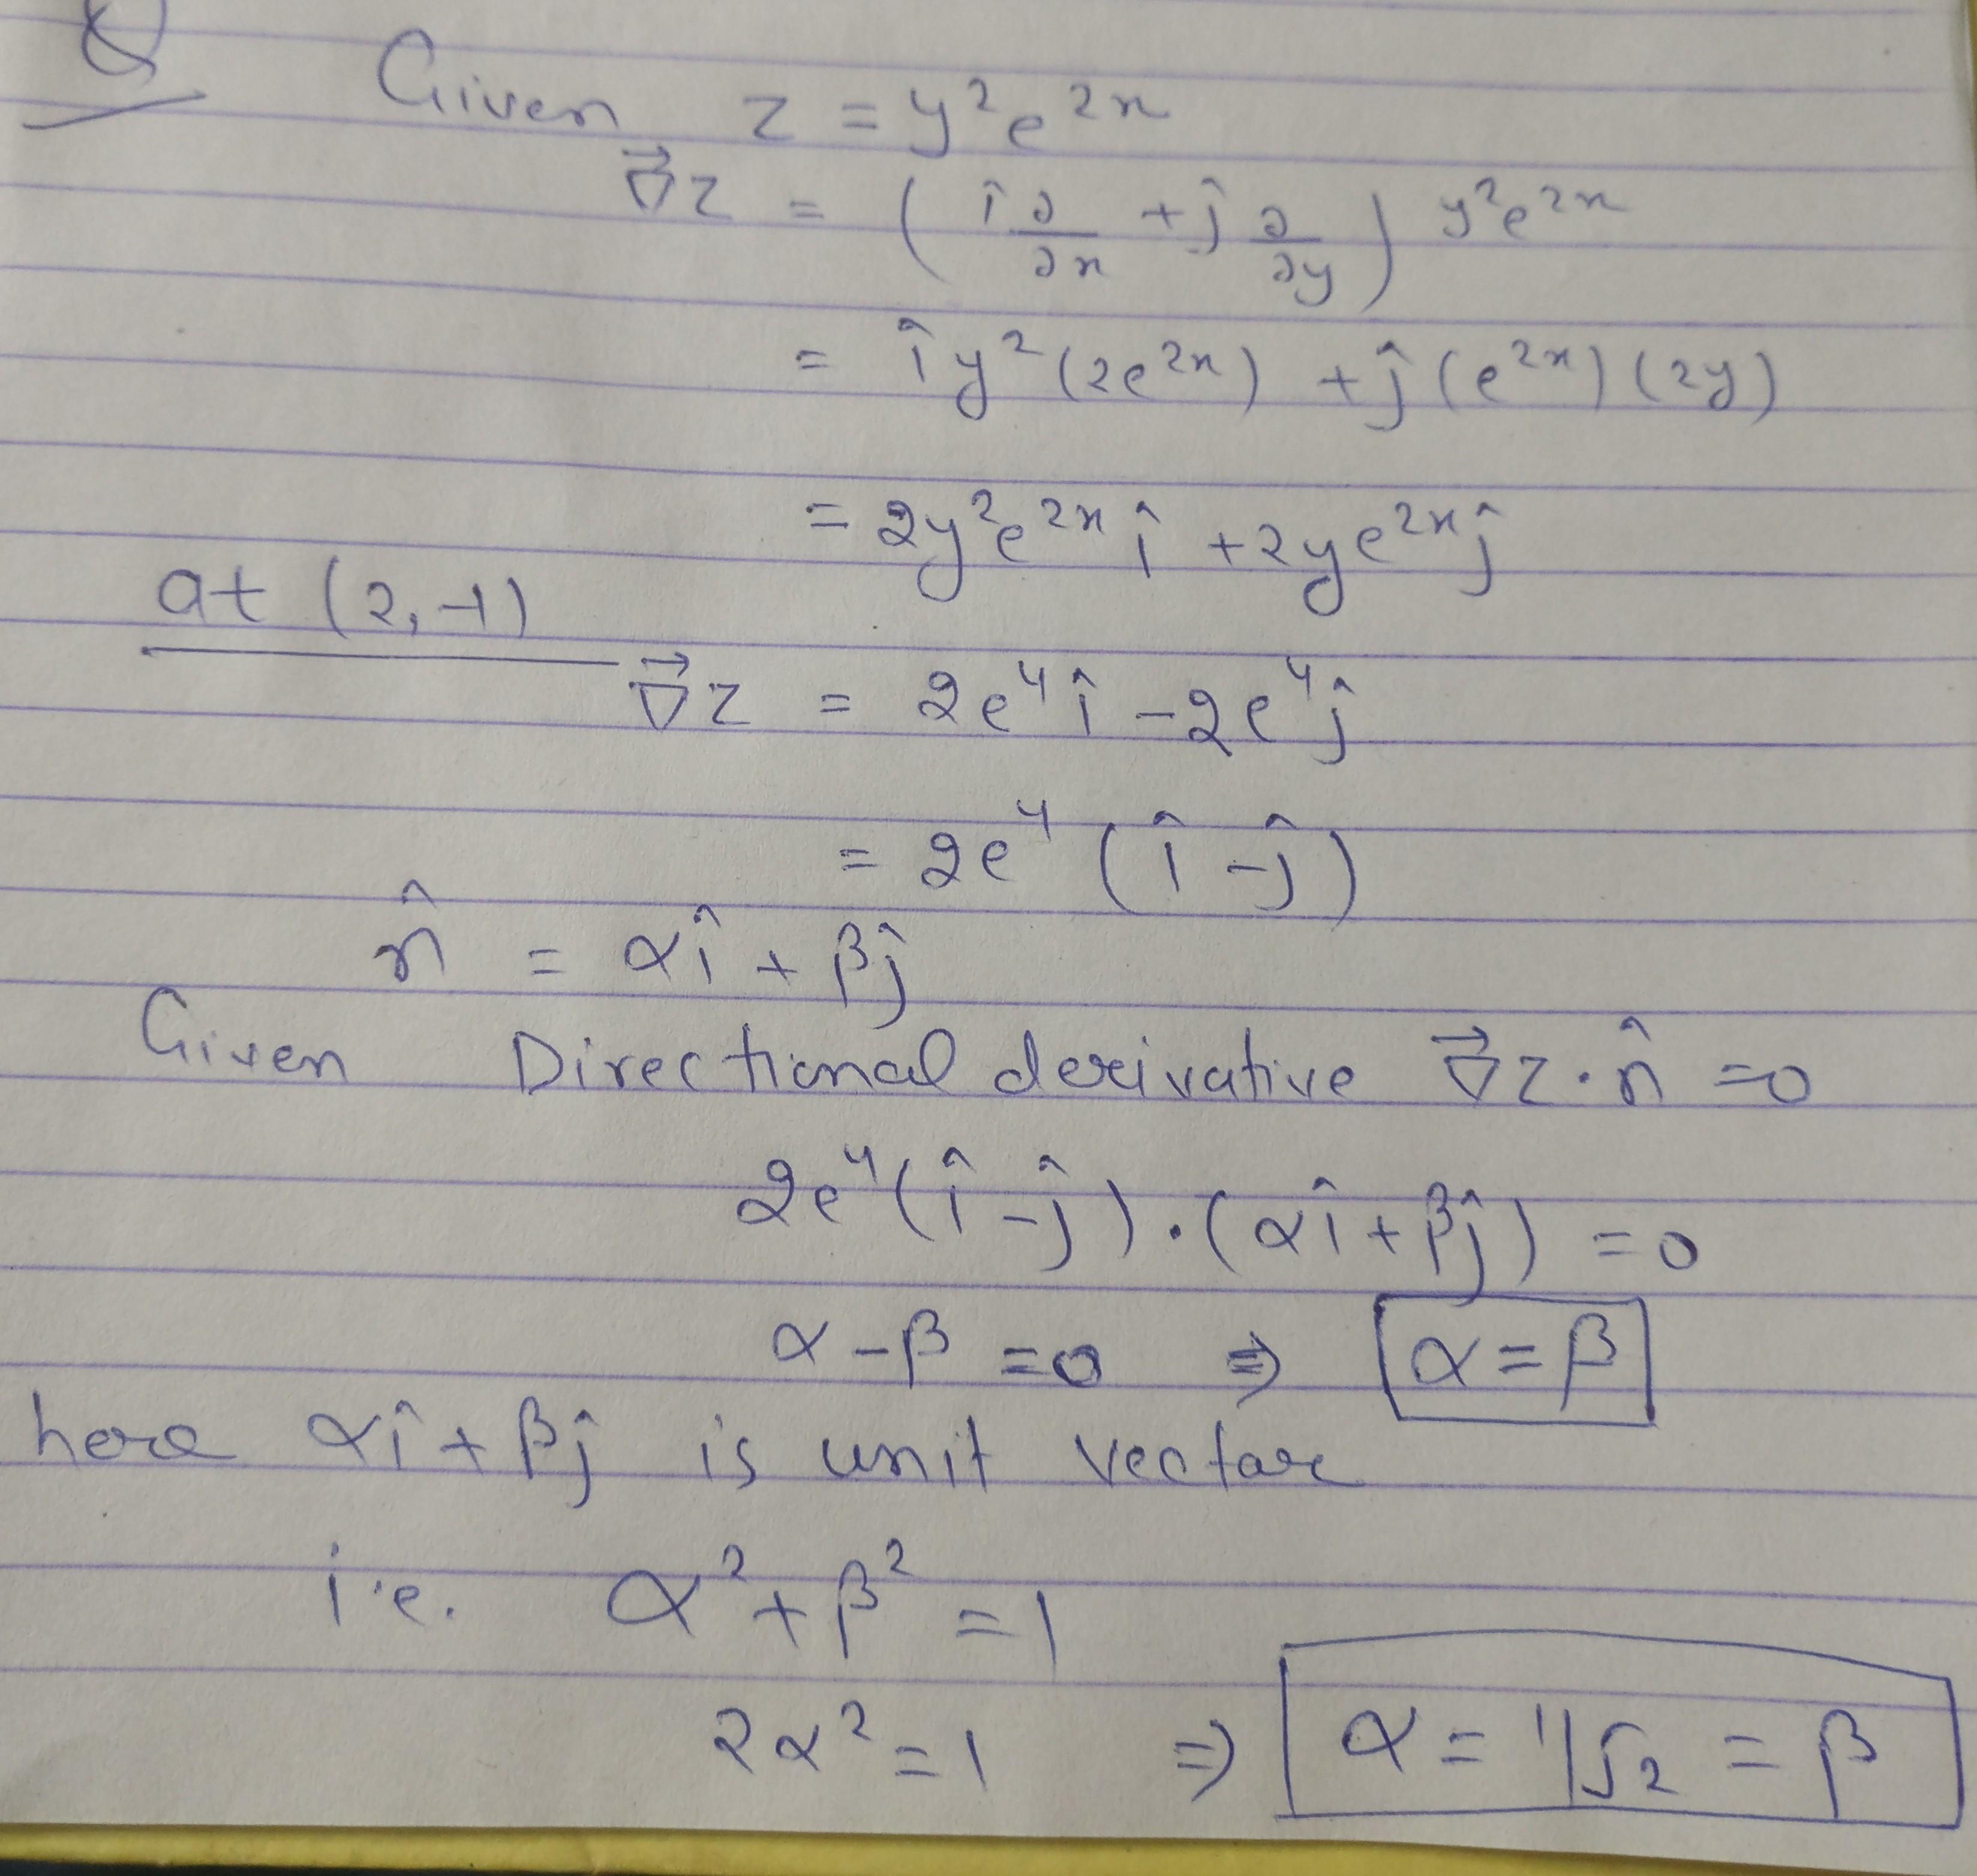 Q
Given z = y²e²ˣ
∇⃗z = ( î ∂/∂x + ĵ ∂/∂y ) y²e²ˣ
= î y² (2e²ˣ) + ĵ (e²ˣ) (2y)
= 2y²e²ˣ î + 2ye²ˣ ĵ
at (2, -1)
∇⃗z = 2e⁴ î - 2e⁴ ĵ
= 2e⁴ (î - ĵ)
n̂ = αî + βĵ
Given Directional derivative ∇⃗z · n̂ = 0
2e⁴ (î - ĵ) · (αî + βĵ) = 0
α - β = 0 ⇒ α = β
here αî + βĵ is unit vector
i.e. α² + β² = 1
2α² = 1 ⇒ α = 1/√2 = β